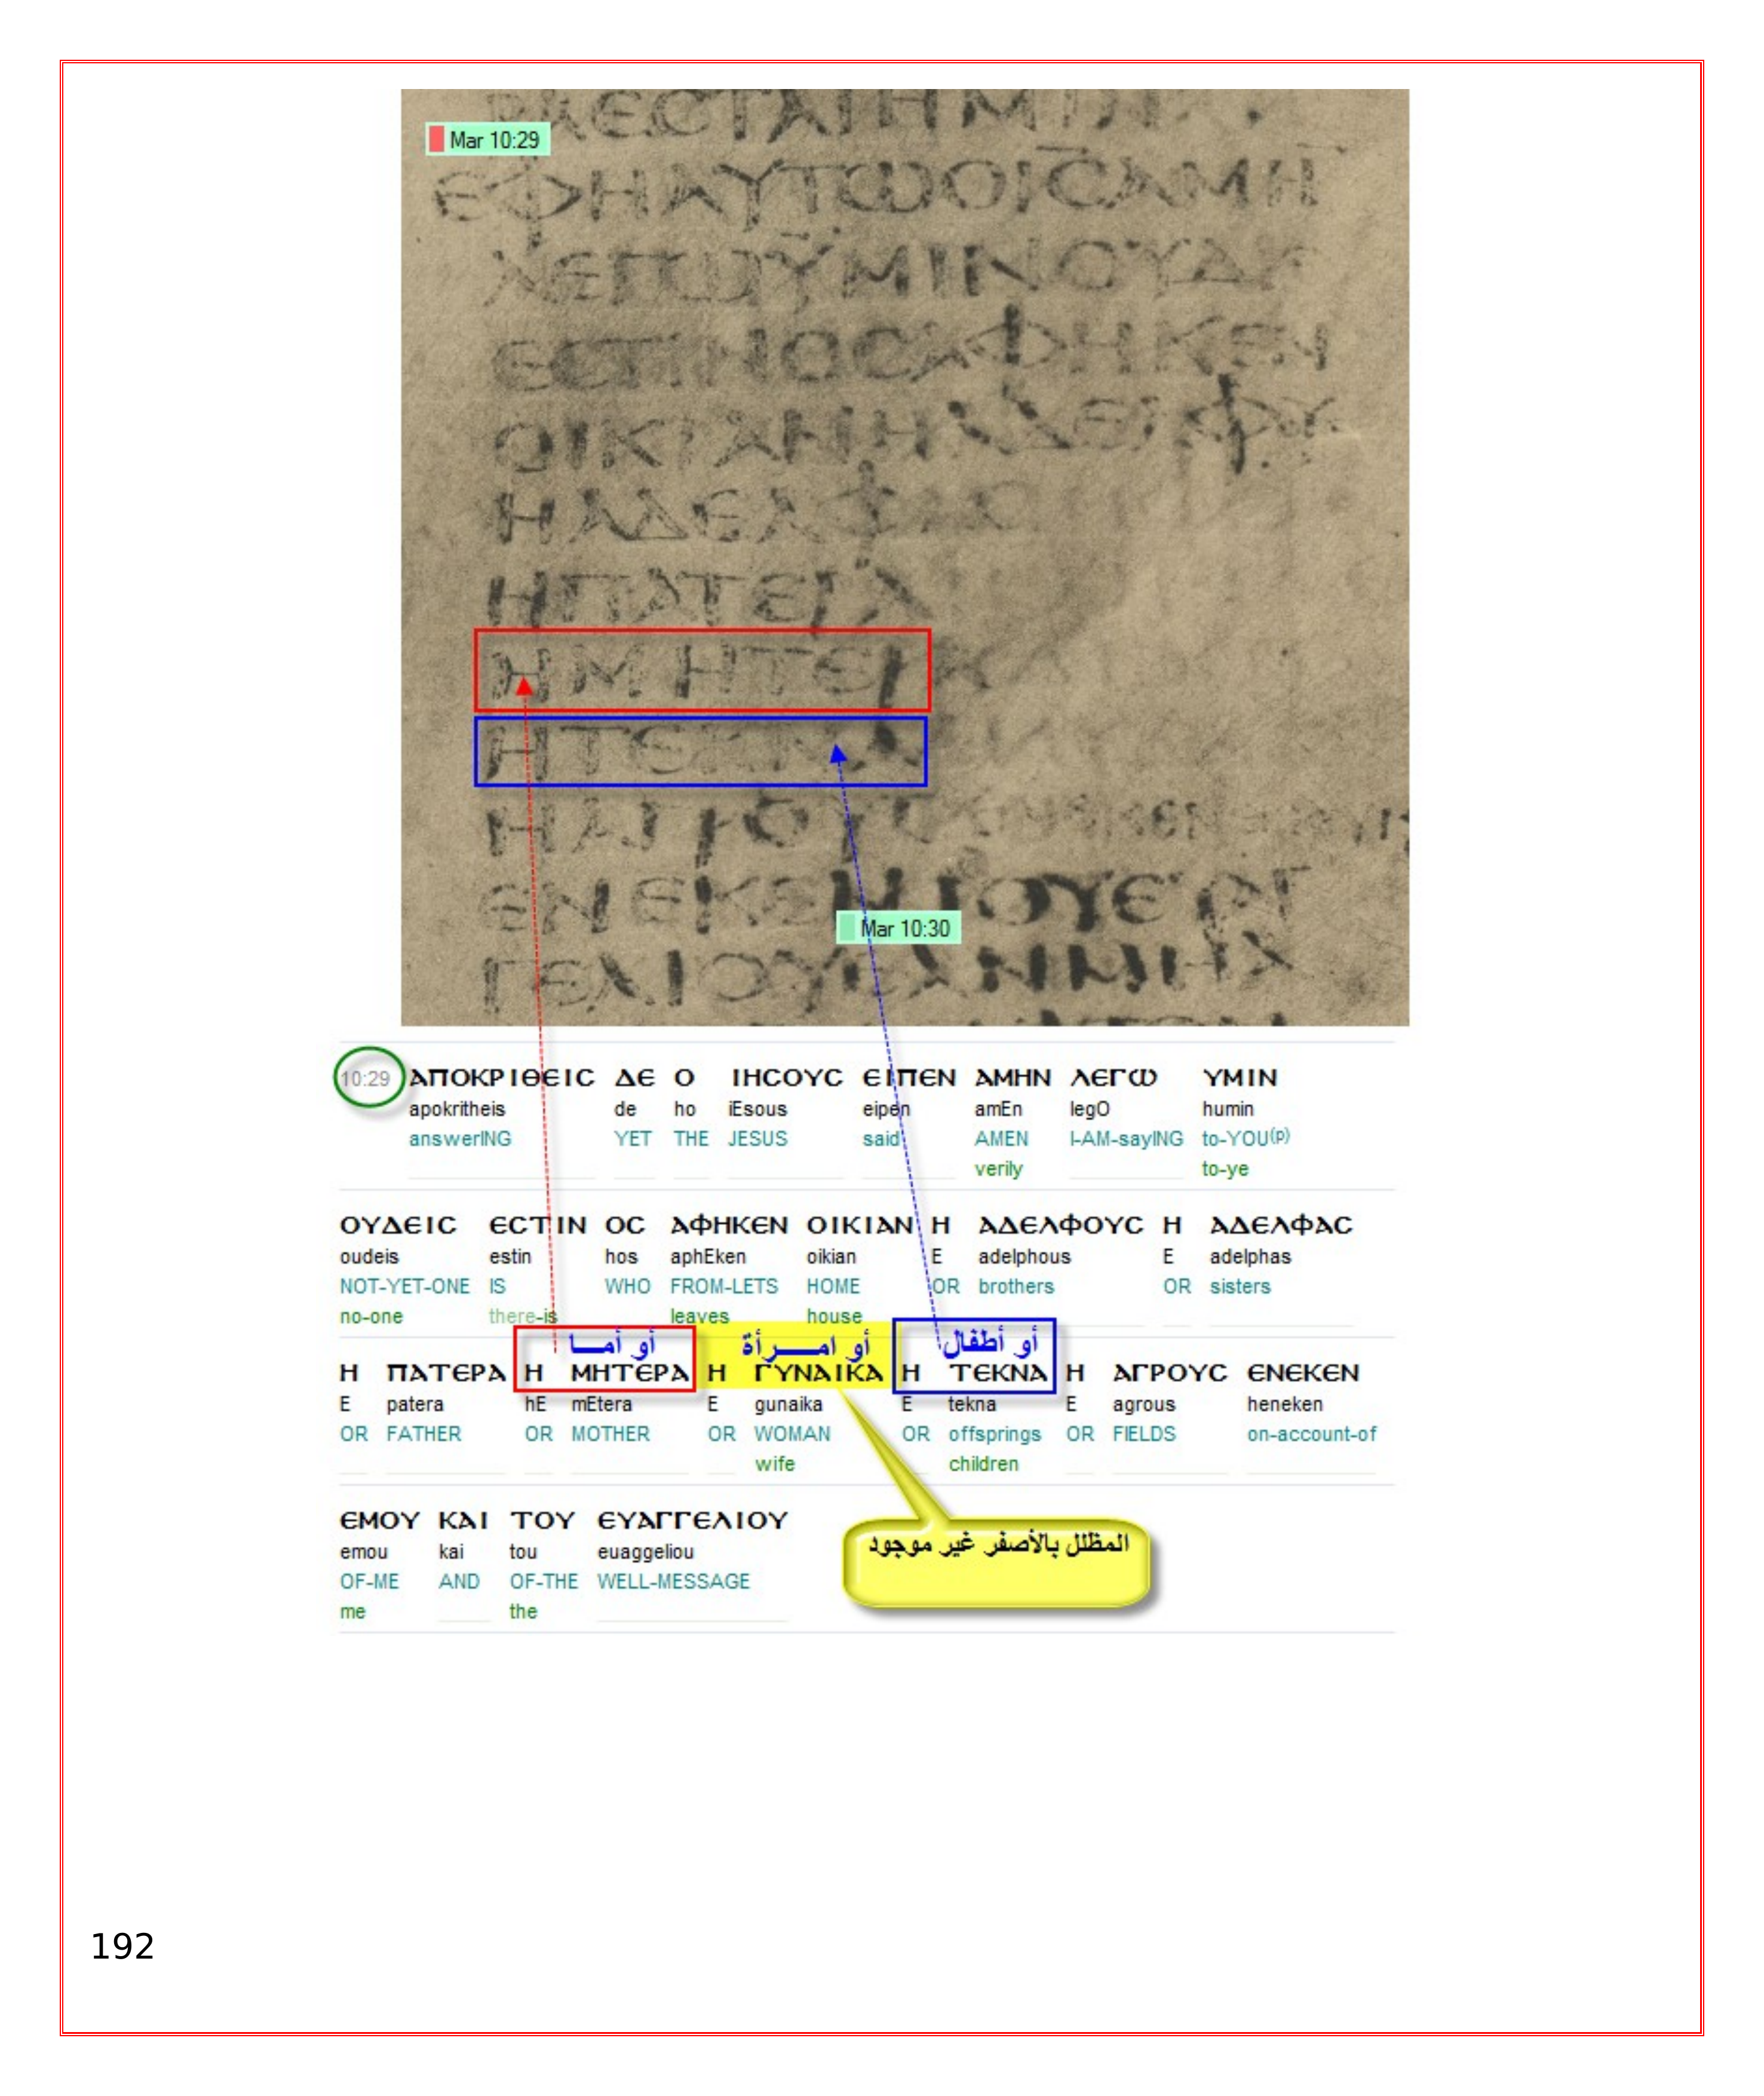 Mar 10:29
ΕΦΗΑΥΤΩΟΙΣΑΜΗ
ΕΣΤΙΝΟΣΑΦΗΚΕΝ
ΟΙΚΙΑΝΗΑΔΕΛΦΥ
ΗΑΔΕΛΦΑΣ
ΗΠΑΤΕΡΑ
ΗΜΗΤΕΡΑ
ΗΤΕΚΝΑ
ΗΑΓΡΟΥΣ
Mar 10:30
10:29 ΑΠΟΚΡΙΘΕΙC ΔΕ Ο ΙΗCΟΥC ΕΙΠΕΝ ΑΜΗΝ ΛΕΓΩ ΥΜΙΝ
apokritheis de ho iEsous eipen amEn legO humin
answerING YET THE JESUS said AMEN I-AM-sayING to-YOU(p)
verily to-ye
ΟΥΔΕΙC ΕCΤΙΝ ΟC ΑΦΗΚΕΝ ΟΙΚΙΑΝ Η ΑΔΕΛΦΟΥC Η ΑΔΕΛΦΑC
oudeis estin hos aphEken oikian E adelphous E adelphas
NOT-YET-ONE IS WHO FROM-LETS HOME OR brothers OR sisters
no-one there-is leaves house
أو أمـــا أو امــــرأة أو أطفال
Η ΠΑΤΕΡΑ Η ΜΗΤΕΡΑ Η ΓΥΝΑΙΚΑ Η ΤΕΚΝΑ Η ΑΓΡΟΥC ΕΝΕΚΕΝ
E patera hE mEtera E gunaika E tekna E agrous heneken
OR FATHER OR MOTHER OR WOMAN OR offsprings OR FIELDS on-account-of
wife children
ΕΜΟΥ ΚΑΙ ΤΟΥ ΕΥΑΓΓΕΛΙΟΥ
emou kai tou euaggeliou
OF-ME AND OF-THE WELL-MESSAGE
me the
المظلل بالأصفر غير موجود
192